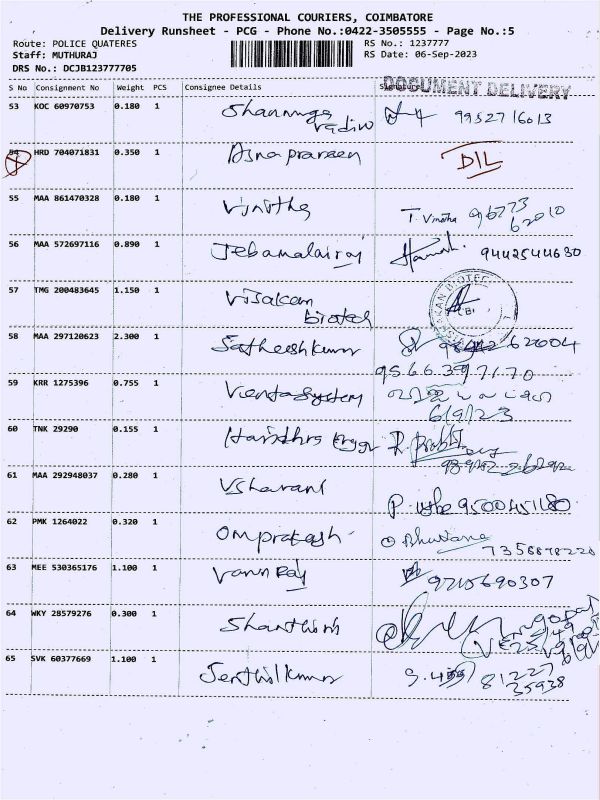 THE PROFESSIONAL COURIERS, COIMBATORE
Delivery Runsheet - PCG - Phone No.:0422-3505555 - Page No.:5
Route: POLICE QUATERES RS No.: 1237777
Staff: MUTHURAJ RS Date: 06-Sep-2023
DRS No.: DCJB123777705
S No Consignment No Weight PCS Consignee Details Signature
DOCUMENT DELIVERY
53 KOC 60970753 0.180 1 Shanmuga
vadivu 9952716013
54 HRD 704071831 0.350 1 Asna praveen D/L
55 MAA 861470328 0.180 1 Vinitha T. Vinitha 96773
62010
56 MAA 572697116 0.890 1 Jebamalairaj 9442544630
57 TMG 200483645 1.150 1 Vijakan
biotech
58 MAA 297120623 2.300 1 Satheeshkumar
9566397170
59 KRR 1275396 0.755 1 Vientasystem
6/9/23
60 TNK 29290 0.155 1 R. Prabhu
61 MAA 292948037 0.280 1 Vsharani
P. 9500451180
62 PMK 1264022 0.320 1 Omprakash
Bhuvana
7358878220
63 MEE 530365176 1.100 1 Varun Raj 9715690307
64 WKY 28579276 0.300 1
65 SVK 60377669 1.100 1 Senthilkumar 81227
35938